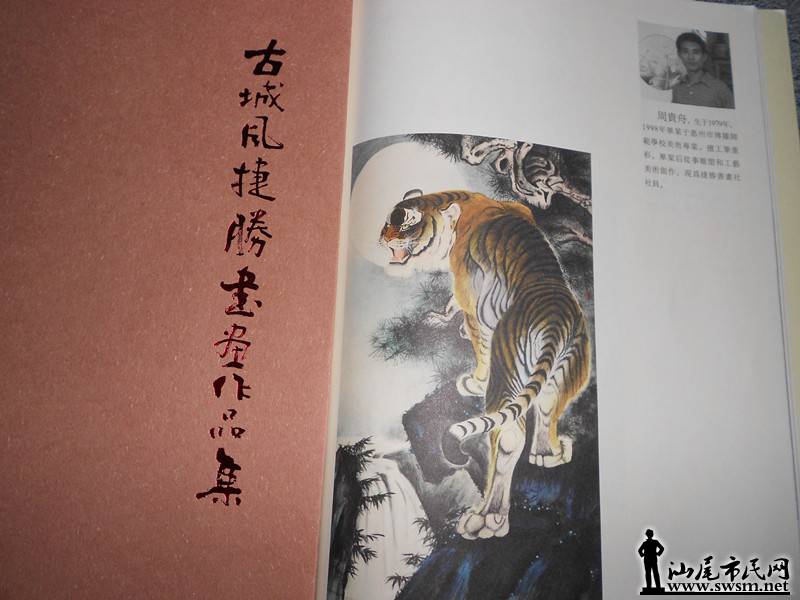 古城风捷勝書画作品集
周貴舟，生于1979年，
1998年畢業于惠州市博羅師
範學校美術專業，擅工筆重
彩，畢業后從事雕塑和工藝
美術創作，現爲捷勝書畫社
社員。
汕尾市民网
www.swsm.net